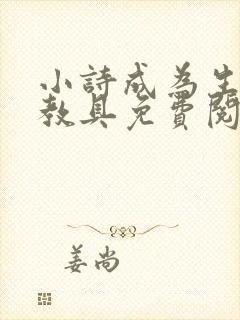 小詩成為生
教具免費閱
姜尚